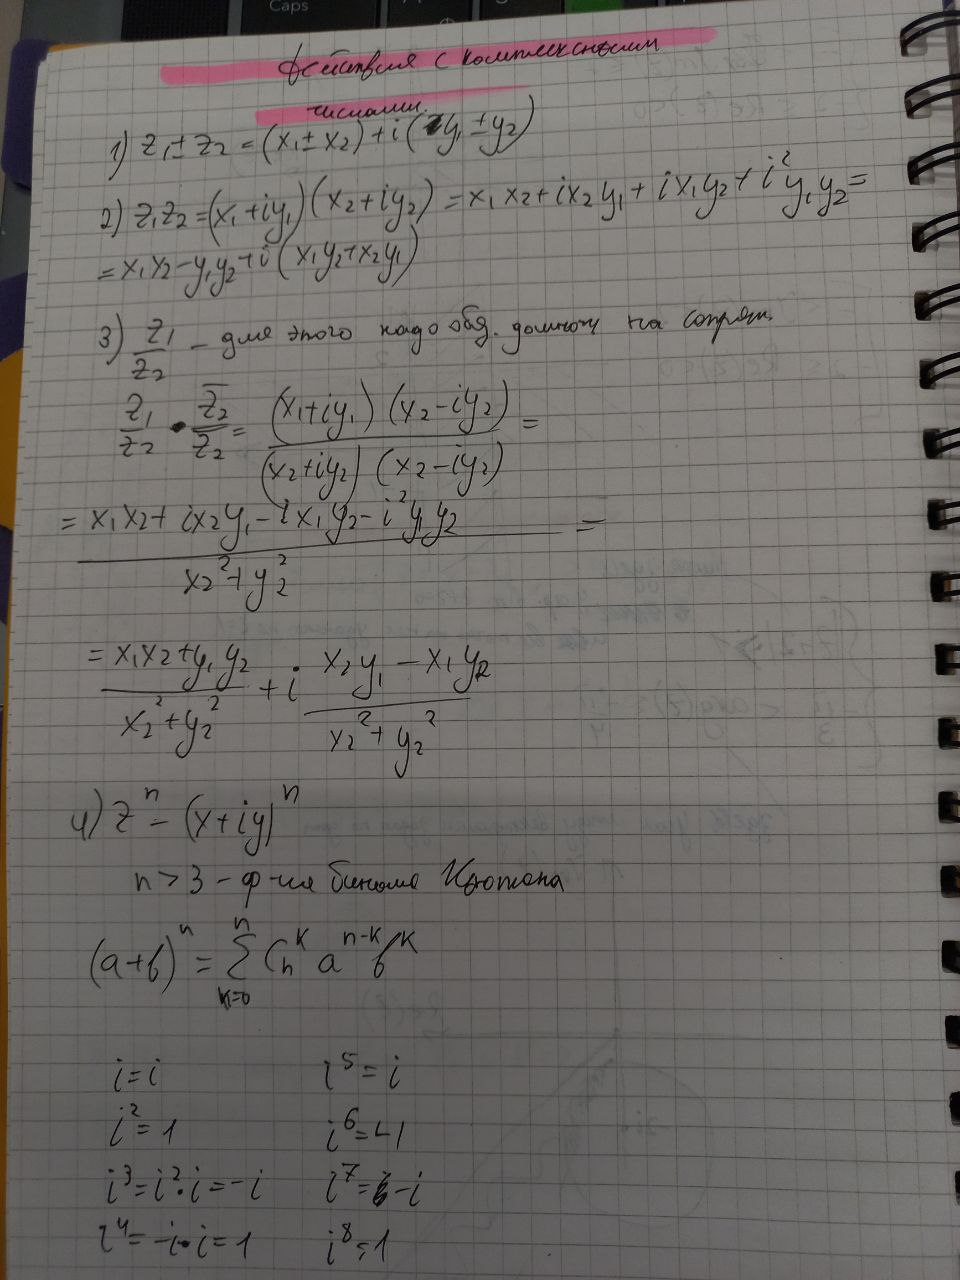 Caps
Действия с комплексными
числами.
1) z₁ ± z₂ = (x₁ ± x₂) + i (y₁ ± y₂)
2) z₁z₂ = (x₁ + iy₁) (x₂ + iy₂) = x₁x₂ + ix₂y₁ + ix₁y₂ + i²y₁y₂ =
= x₁x₂ - y₁y₂ + i (x₁y₂ + x₂y₁)
3) z₁/z₂ - для этого надо обяз. домнож на сопряж.
z₁/z₂ • z̅₂/z̅₂ = (x₁+iy₁) (x₂-iy₂) / (x₂+iy₂) (x₂-iy₂) =
= x₁x₂ + ix₂y₁ - ix₁y₂ - i²y₁y₂ / x₂² + y₂² =
= x₁x₂ + y₁y₂ / x₂² + y₂² + i · x₂y₁ - x₁y₂ / x₂² + y₂²
4) zⁿ - (x+iy)ⁿ
n > 3 - ф-ла бинома Ньютона
(a+b)ⁿ = ∑ₖ₌₀ⁿ Cₙᵏ aⁿ⁻ᵏ bᵏ
i = i i⁵ = i
i² = 1 i⁶ = -1
i³ = i² · i = -i i⁷ = -i
i⁴ = -i · i = 1 i⁸ = 1